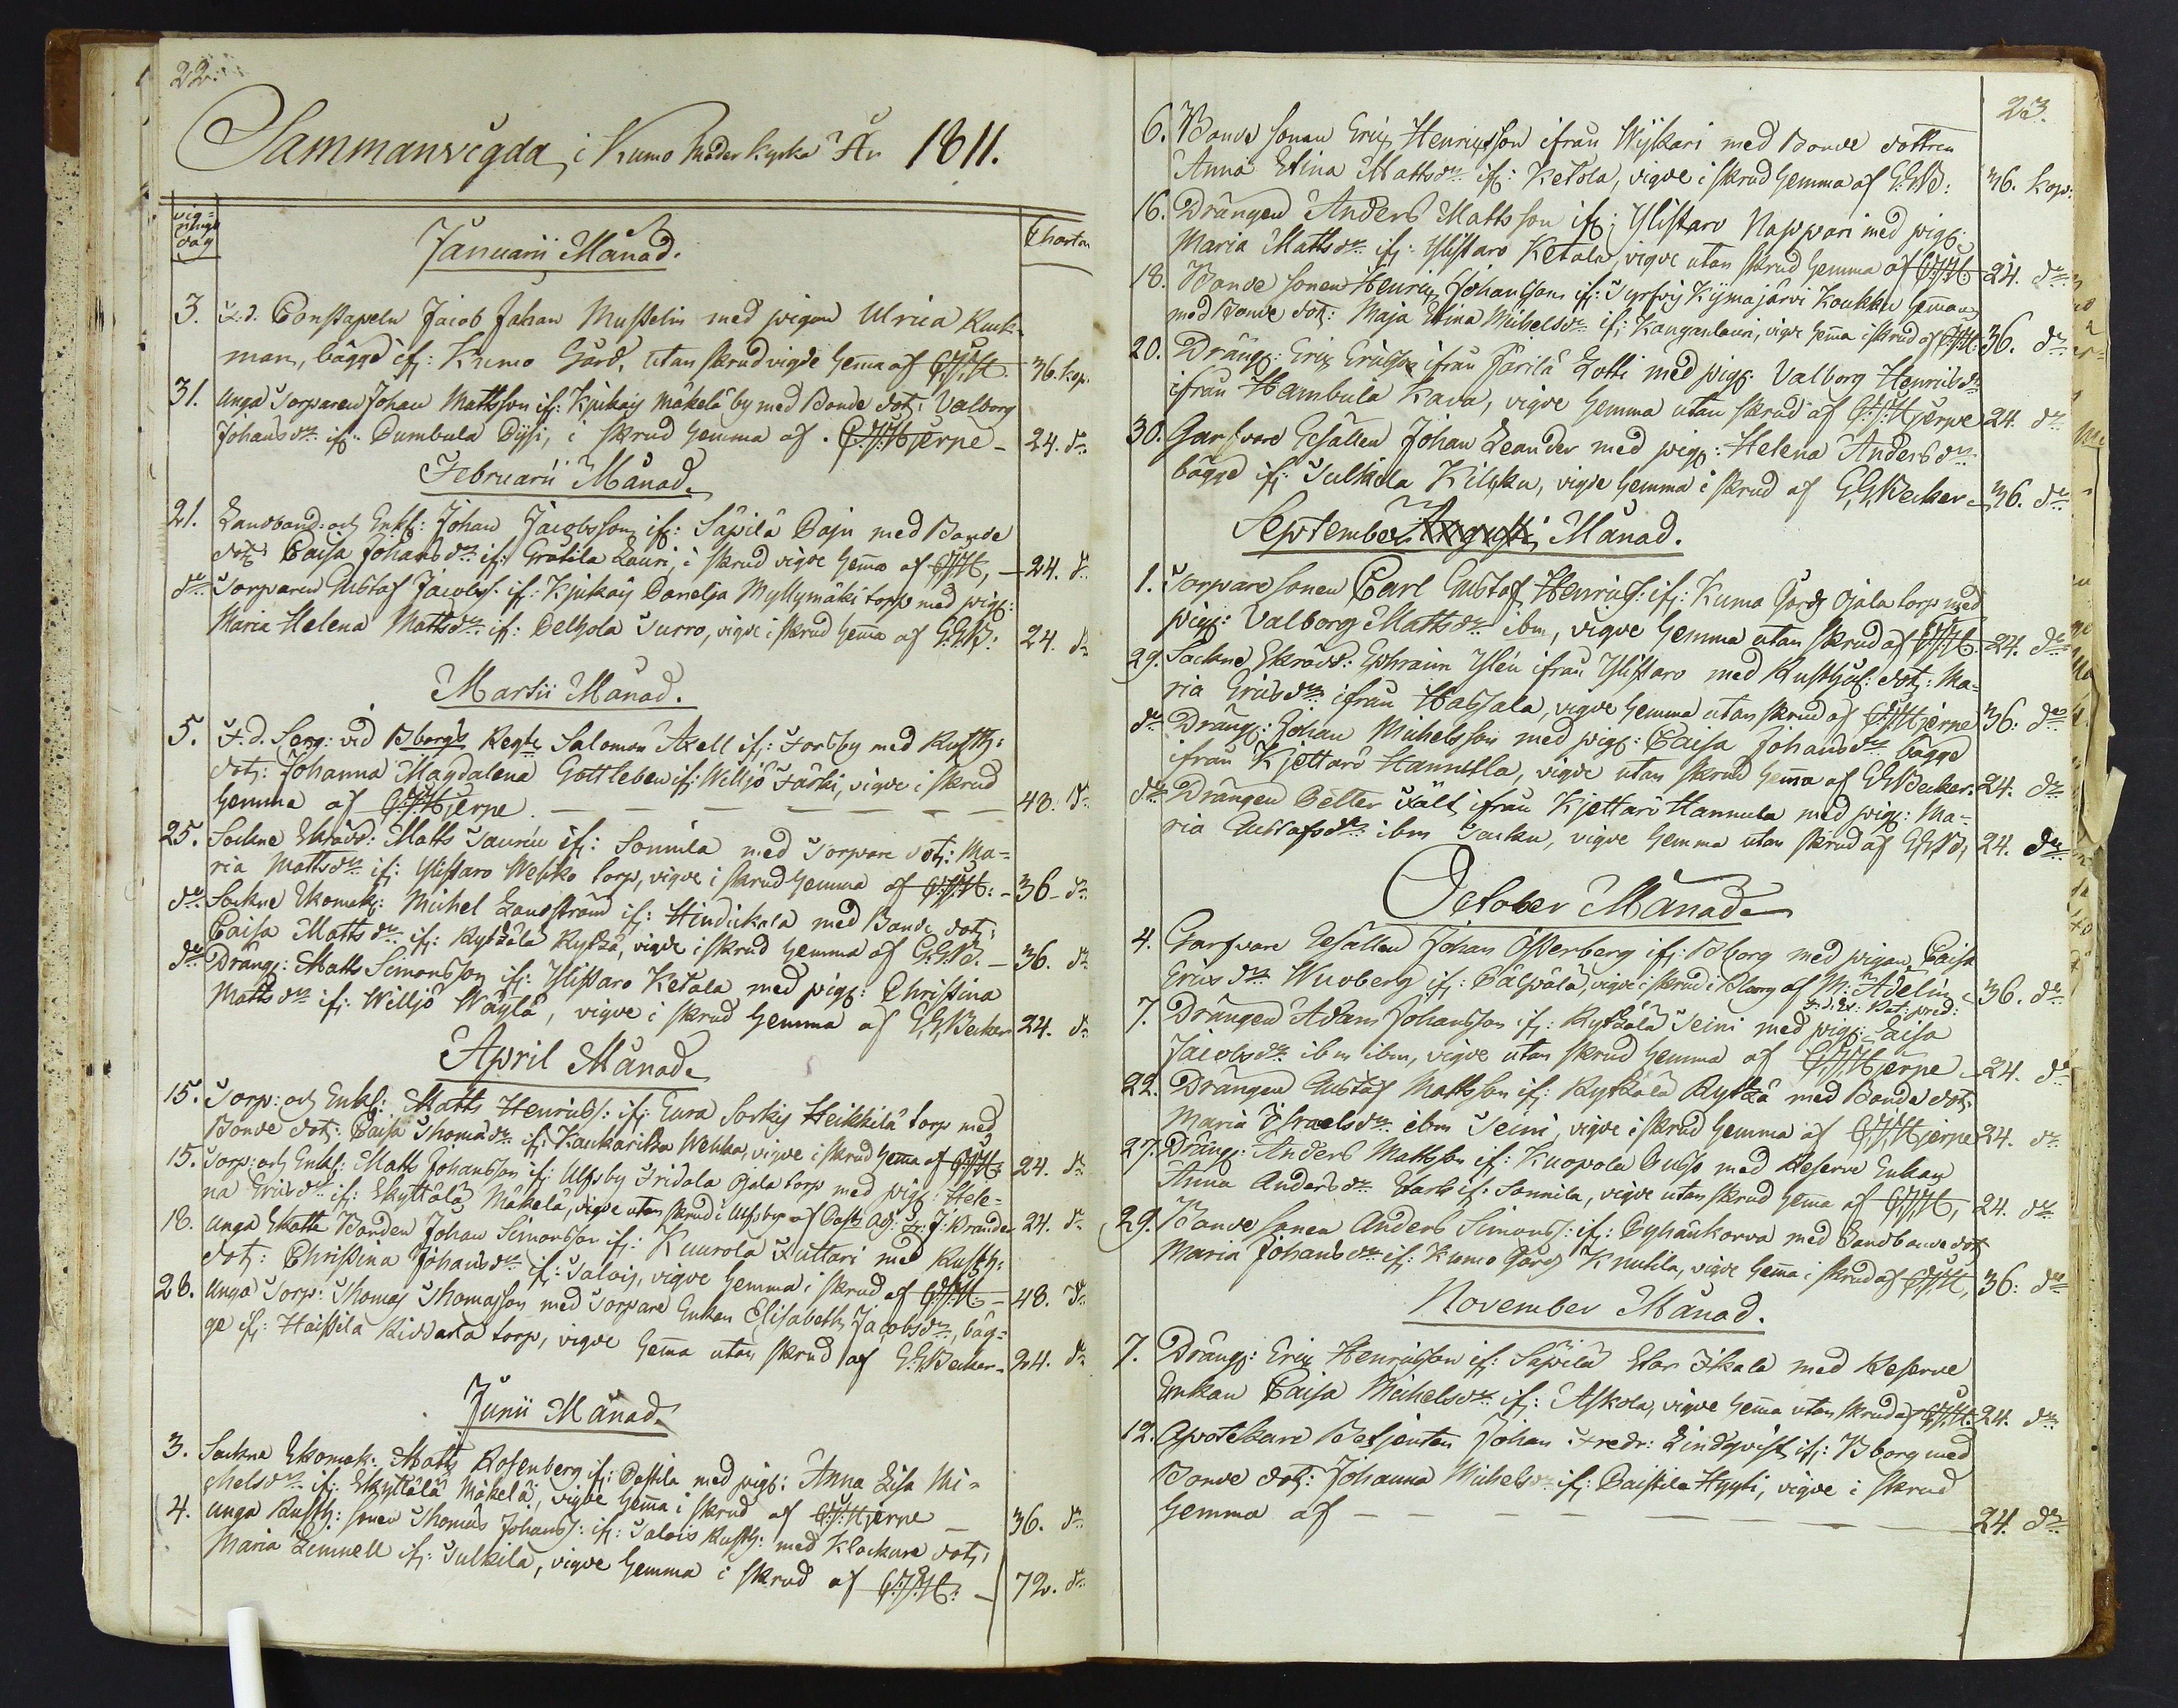 22.
Sammanvigda i Kumo Moder Kyrka År 1811.
vig=
nings
dag
Charta
Januarii Månad.
3. F.d. Constapeln Jacob Johan Musselin med pigan Ulrica Ruck-
man, bägge ifr: Kumo Gård, utan skrud vigde hema af G:J:H. 36. kop.
31. Unga Torparen Johan Mattsson ifr: Kjukais Mäkelä by med Bonde dotr: Valborg
Johansdr. ifr: Pumbula Pyssi, i skrud hemma af G:J:Hjerpe - 24. dr.
Februarii Månad.
21. Landbond: och Enkl: Johan Jacobsson ifr: Säpilä Paju med Bonde
dotr: Caisa Johansdr. ifr: Gråtila Lauri, i skrud vigde hema af G:J:H, - 24. dr.
dr. Torparen Gustaf Jacobs: ifr: Kjukais Panelja Myllymäki torp med pig:
Maria Helena Mattsdr. ifr: Pelhola Surro, vigde i skrud hema af G.G.B: 24. dr.
Martii Månad.
5. F.d. Serg: vid Bborg's Regte Salomon Axell ifr: Forsby med Rusth:
dotr: Johanna Magdalena Gottleben ifr: Willjo Färki, vigde i skrud
hemma af G:J:Hjerpe. - - - - - 48. dr.
25. Sockne Skrädd: Matts Taurén ifr: Sonnila med Torpare dotr: Ma=
ria Mattsdr. ifr: Ylistaro Wehko torp, vigde i skrud hemma af G:J:H: - 36 - dr.
dr. Sockne Skomak: Michel Landström ifr: Hindickala med Bonde dotr:
Caisa Mattsdr. ifr: Kytkälä Rytkä, vigde i skrud hemma af G.G.B. - 36. dr.
dr. Dräng: Matts Simonsson ifr: Ylistaro Ketola med pig: Christina
Mattsdr. ifr: Willjo Wäylä, vigde i skrud hemma af G.G.Becker 24. dr.
April Månad.
15. Torp: och Enkl: Matts Henrics: ifr: Eura Sorkis Heikkilä torp med
Bonde dotr: Caisa Thomædr. ifr: Kaukaritza Wehka, vigde i skrud hema af G:J:H: 24. dr.
15. Torp: och Enkl: Matts Johansson ifr: Ulfsby Fridala Ojala torp med pig: Hele=
na Ericsdr. ifr: Skyttälä Mäkelä, vigde utan skrud i Ulfsby af Past: Adj: Hr: J: Krander 24. dr.
18. Unga Skatte Bonden Johan Simonsson ifr: Kuurola Futtari med Rusth:
dotr: Christina Johansdr. ifr: Talois, vigde hemma i skrud af G:J:H: - 48. dr.
28. Unga Torp: Thomas Thomasson med Torpare Enkan Elisabeth Jacobsdr., bäg=
ge ifr: Haistila Riddarla torp, vigde hema utan skrud af G.G.Becker - 24. dr.
Junii Månad.
3. Sockne Skomak: Matts Rosenberg ifr: Pastila med pig: Anna Lisa Mi=
chelsdr. ifr: Skyttälä Mäkelä, vigde hema i skrud af G:J:Hjerpe - 36. dr.
4. Unga Rusth: sonen Thomas Johans: ifr: Talois Rusth: med Klockare dotr:
Maria Lemnell ifr: Tulkila, vigde hemma i skrud af G:J:H: - 72. dr.
23.
6. Bonde sonen Eric Henricsson ifrån Wijkari med Bonde dottren
Anna Stina Mattsdr. ifr: Ketola, vigde i skrud hemma af G.G.B: 36. Kop:
16. Drängen Anders Mattsson ifr: Ylistaro Nappari med pig:
Maria Mattsdr. ifr: Ylistaro Ketala, vigde utan skrud hemma af G:J:H: 24. dr.
18. Bonde sonen Henric Johansson ifr: Tyrfvis Kijmajärvi Koukku hemman
med Bonde dotr: Maja Stina Michelsdr. ifr: Kanganlauri, vigde hema i skrud af G:J:H: 36. dr.
20. Dräng: Eric Ericsson ifrån Järilä Lotti med pig: Valborg Henricsdr.
ifrån Hambula Kava, vigde hemma utan skrud af G:J:Hjerpe 24. dr.
30. Garfvare Gesällen Johan Leander med pig: Helena Andersdr.
bägge ifr: Tulkila Kilkku, vigde hemma i skrud af G.G.Becker - 36. dr.
September Augusti Månad.
1. Torpare sonen Carl Gustaf Henrics: ifr: Kumo Gårds Ojala torp med
pig: Valborg Mattsdr. ibm, vigde hemma utan skrud af G:J:H: 24. dr.
29. Sockne Skrädd: Ephraim Ylén ifrån Ylistaro med Rusthåll: dotr: Ma=
ria Ericsdr. ifrån Hassala, vigde hemma utan skrud af G:J:Hjerpe 36: dr.
dr. Dräng: Johan Michelsson med pig: Caisa Johansdr. bägge
ifrån Kjettarö Hannula, vigde utan skrud hema af G.G.Becker. 24. dr.
dr. Drängen Petter Fält ifrån Kjettarö Hannula med pig: Ma=
ria Gustafsdr. ibm Jacku, vigde hemma utan skrud af G.G.B, 24. dr.
October Månad.
4. Garfvare Gesällen Johan Österberg ifr: Bborg med pigan Caisa
Ericsdr. Wirberg ifr: Pälpälä, vigde i skrud i Bborg af M: Adelin - 36. dr.
F.d. Ex: Bat: pred:
7. Drängen Adam Johansson ifr: Kytkälä Teini med pig: Caisa
Jacobsdr. ibm ibm, vigde utan skrud hemma af G:J:Hjerpe - 24. dr.
22. Drängen Gustaf Mattsson ifr: Kytkälä Rytkä med Bonde dotr:
Maria Israelsdr. ibm Teini, vigde i skrud hemma af G:J:Hjerpe 24. dr.
27. Dräng: Anders Mattsson ifr: Kuopola Pusso med Reserve Enkan
Anna Andersdr. Stark ifr: Sonnila, vigde utan skrud hema af G:J:H, 24. dr.
29. Bonde sonen Anders Simons: ifr: Pyhänkorva med Landbonde dotr:
Maria Johansdr. ifr: Kumo Gårds Knutila, vigde hema i skrud af G:J:H, 36: dr.
November Månad.
7. Dräng: Eric Henricsson ifr: Säpilä Stor Skala med Reserve
Enkan Caisa Michelsdr. ifr: Askola, vigde hema utan skrud af G:J:H: 24. dr.
12. Apotekare Betjenten Johan Fredr: Lindqvist ifr: Bborg med
Bonde dotr: Johanna Michelsdr. ifr: Paistila Hyyti, vigde i skrud
hemma af - - - - - - 24. dr.